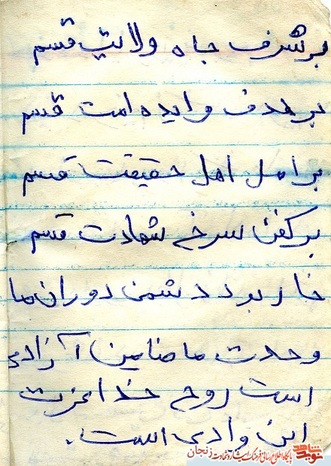 بر شرف جاه ولایت قسم
بر هدف و ایده امت قسم
بر امل اهل حقیقت قسم
بر کفن سرخ شهادت قسم
خار بود دشمن دوران ما
وحدت ما ضامن آزادی
است روح خدا عزت
این وادی است.
نوید شاهد
زنجان